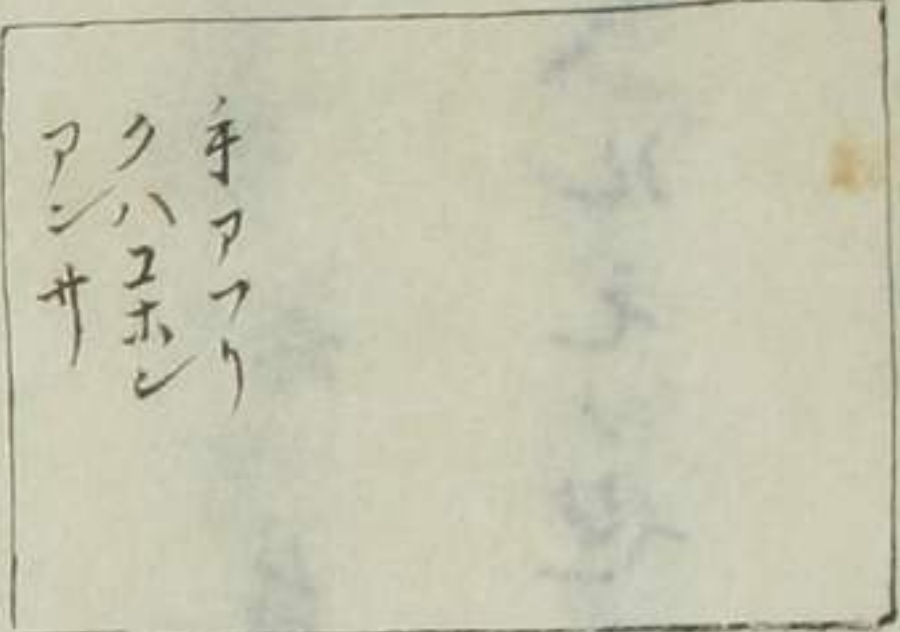 手アフリ
クハコホン
アンサ